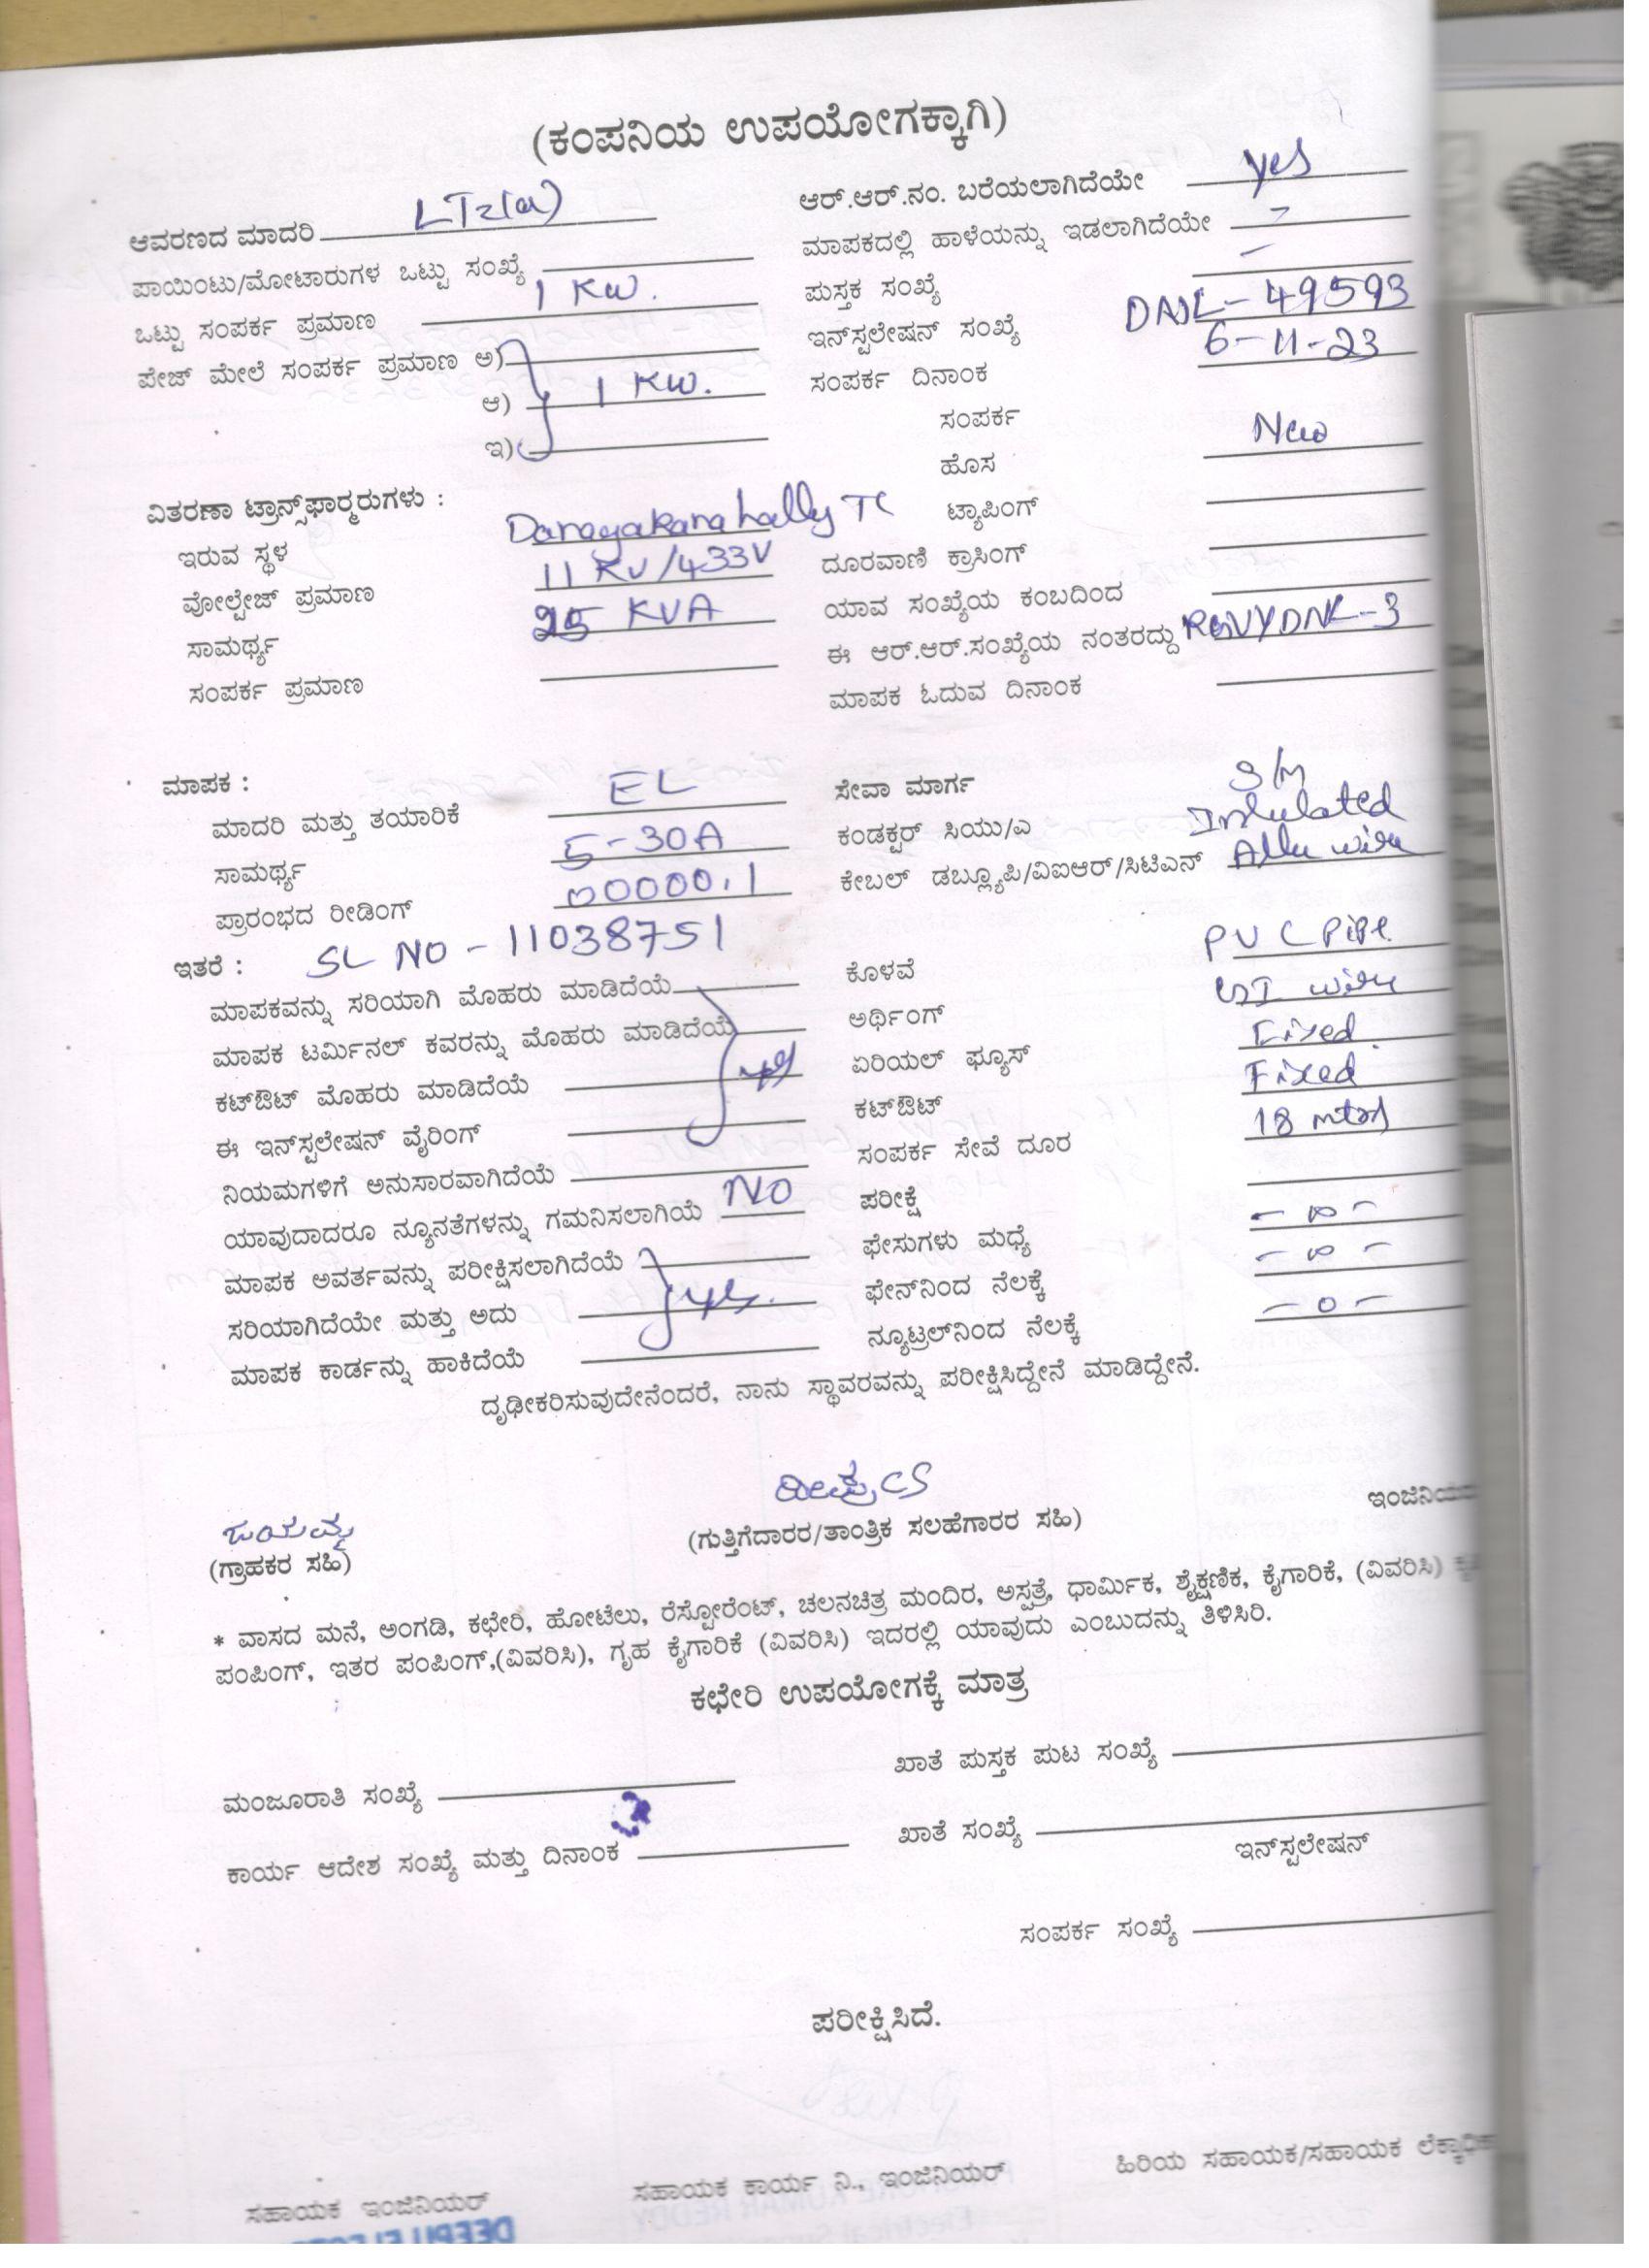 (ಕಂಪನಿಯ ಉಪಯೋಗಕ್ಕಾಗಿ)
ಆವರಣದ ಮಾದರಿ LT2(a)
ಪಾಯಿಂಟು/ಮೋಟಾರುಗಳ ಒಟ್ಟು ಸಂಖ್ಯೆ
ಒಟ್ಟು ಸಂಪರ್ಕ ಪ್ರಮಾಣ 1 KW.
ಪೇಜ್ ಮೇಲೆ ಸಂಪರ್ಕ ಪ್ರಮಾಣ ಅ)
ಆ) 1 KW.
ಇ)
ಆರ್.ಆರ್.ನಂ. ಬರೆಯಲಾಗಿದೆಯೇ yes
ಮಾಪಕದಲ್ಲಿ ಹಾಳೆಯನ್ನು ಇಡಲಾಗಿದೆಯೇ -
ಪುಸ್ತಕ ಸಂಖ್ಯೆ -
ಇನ್‌ಸ್ಟಲೇಷನ್ ಸಂಖ್ಯೆ DNJL-49593
ಸಂಪರ್ಕ ದಿನಾಂಕ 6-11-23
ಸಂಪರ್ಕ
ಹೊಸ New
ಟ್ಯಾಪಿಂಗ್
ದೂರವಾಣಿ ಕ್ರಾಸಿಂಗ್
ಯಾವ ಸಂಖ್ಯೆಯ ಕಂಬದಿಂದ
ಈ ಆರ್.ಆರ್.ಸಂಖ್ಯೆಯ ನಂತರದ್ದು
ಮಾಪಕ ಓದುವ ದಿನಾಂಕ
ವಿತರಣಾ ಟ್ರಾನ್ಸ್‌ಫಾರ್ಮರುಗಳು :
ಇರುವ ಸ್ಥಳ Darayakanahally TC
ವೋಲ್ಟೇಜ್ ಪ್ರಮಾಣ 11 KV/433V
ಸಾಮರ್ಥ್ಯ 25 KVA
ಸಂಪರ್ಕ ಪ್ರಮಾಣ
ಮಾಪಕ :
ಮಾದರಿ ಮತ್ತು ತಯಾರಿಕೆ EL
ಸಾಮರ್ಥ್ಯ 5-30A
ಪ್ರಾರಂಭದ ರೀಡಿಂಗ್ 00000.1
ಇತರೆ : SL NO - 11038751
ಮಾಪಕವನ್ನು ಸರಿಯಾಗಿ ಮೊಹರು ಮಾಡಿದೆಯೆ
ಮಾಪಕ ಟರ್ಮಿನಲ್ ಕವರನ್ನು ಮೊಹರು ಮಾಡಿದೆಯೆ
ಕಟ್‌ಔಟ್ ಮೊಹರು ಮಾಡಿದೆಯೆ yes
ಈ ಇನ್‌ಸ್ಟಲೇಷನ್ ವೈರಿಂಗ್
ನಿಯಮಗಳಿಗೆ ಅನುಸಾರವಾಗಿದೆಯೆ
ಯಾವುದಾದರೂ ನ್ಯೂನತೆಗಳನ್ನು ಗಮನಿಸಲಾಗಿಯೆ NO
ಮಾಪಕ ಅವರ್ತವನ್ನು ಪರೀಕ್ಷಿಸಲಾಗಿದೆಯೆ
ಸರಿಯಾಗಿದೆಯೇ ಮತ್ತು ಅದು yes.
ಮಾಪಕ ಕಾರ್ಡನ್ನು ಹಾಕಿದೆಯೆ
ಸೇವಾ ಮಾರ್ಗ S/M
ಕಂಡಕ್ಟರ್ ಸಿಯು/ಎ Insulated
ಕೇಬಲ್ ಡಬ್ಲ್ಯೂಪಿ/ವಿಐಆರ್/ಸಿಟಿಎನ್ Allu wire
ಕೊಳವೆ PVC Pipe
ಅರ್ಥಿಂಗ್ GI wire
ಏರಿಯಲ್ ಫ್ಯೂಸ್ Fixed
ಕಟ್‌ಔಟ್ Fixed
ಸಂಪರ್ಕ ಸೇವೆ ದೂರ 18 mtrs
ಪರೀಕ್ಷೆ
ಫೇಸುಗಳು ಮಧ್ಯೆ - ∞ -
ಫೇನ್‌ನಿಂದ ನೆಲಕ್ಕೆ - ∞ -
ನ್ಯೂಟ್ರಲ್‌ನಿಂದ ನೆಲಕ್ಕೆ - 0 -
ದೃಢೀಕರಿಸುವುದೇನೆಂದರೆ, ನಾನು ಸ್ಥಾವರವನ್ನು ಪರೀಕ್ಷಿಸಿದ್ದೇನೆ ಮಾಡಿದ್ದೇನೆ.
(ಗ್ರಾಹಕರ ಸಹಿ)
(ಗುತ್ತಿಗೆದಾರರ/ತಾಂತ್ರಿಕ ಸಲಹೆಗಾರರ ಸಹಿ)
* ವಾಸದ ಮನೆ, ಅಂಗಡಿ, ಕಛೇರಿ, ಹೋಟೆಲು, ರೆಸ್ಟೋರೆಂಟ್, ಚಲನಚಿತ್ರ ಮಂದಿರ, ಅಸ್ಪತ್ರೆ, ಧಾರ್ಮಿಕ, ಶೈಕ್ಷಣಿಕ, ಕೈಗಾರಿಕೆ, (ವಿವರಿಸಿ)
ಪಂಪಿಂಗ್, ಇತರ ಪಂಪಿಂಗ್,(ವಿವರಿಸಿ), ಗೃಹ ಕೈಗಾರಿಕೆ (ವಿವರಿಸಿ) ಇದರಲ್ಲಿ ಯಾವುದು ಎಂಬುದನ್ನು ತಿಳಿಸಿರಿ.
ಕಛೇರಿ ಉಪಯೋಗಕ್ಕೆ ಮಾತ್ರ
ಖಾತೆ ಪುಸ್ತಕ ಪುಟ ಸಂಖ್ಯೆ
ಮಂಜೂರಾತಿ ಸಂಖ್ಯೆ
ಖಾತೆ ಸಂಖ್ಯೆ
ಕಾರ್ಯ ಆದೇಶ ಸಂಖ್ಯೆ ಮತ್ತು ದಿನಾಂಕ
ಇನ್‌ಸ್ಟಲೇಷನ್
ಸಂಪರ್ಕ ಸಂಖ್ಯೆ
ಪರೀಕ್ಷಿಸಿದೆ.
ಸಹಾಯಕ ಇಂಜಿನಿಯರ್ ಸಹಾಯಕ ಕಾರ್ಯ ನಿ., ಇಂಜಿನಿಯರ್ ಹಿರಿಯ ಸಹಾಯಕ/ಸಹಾಯಕ